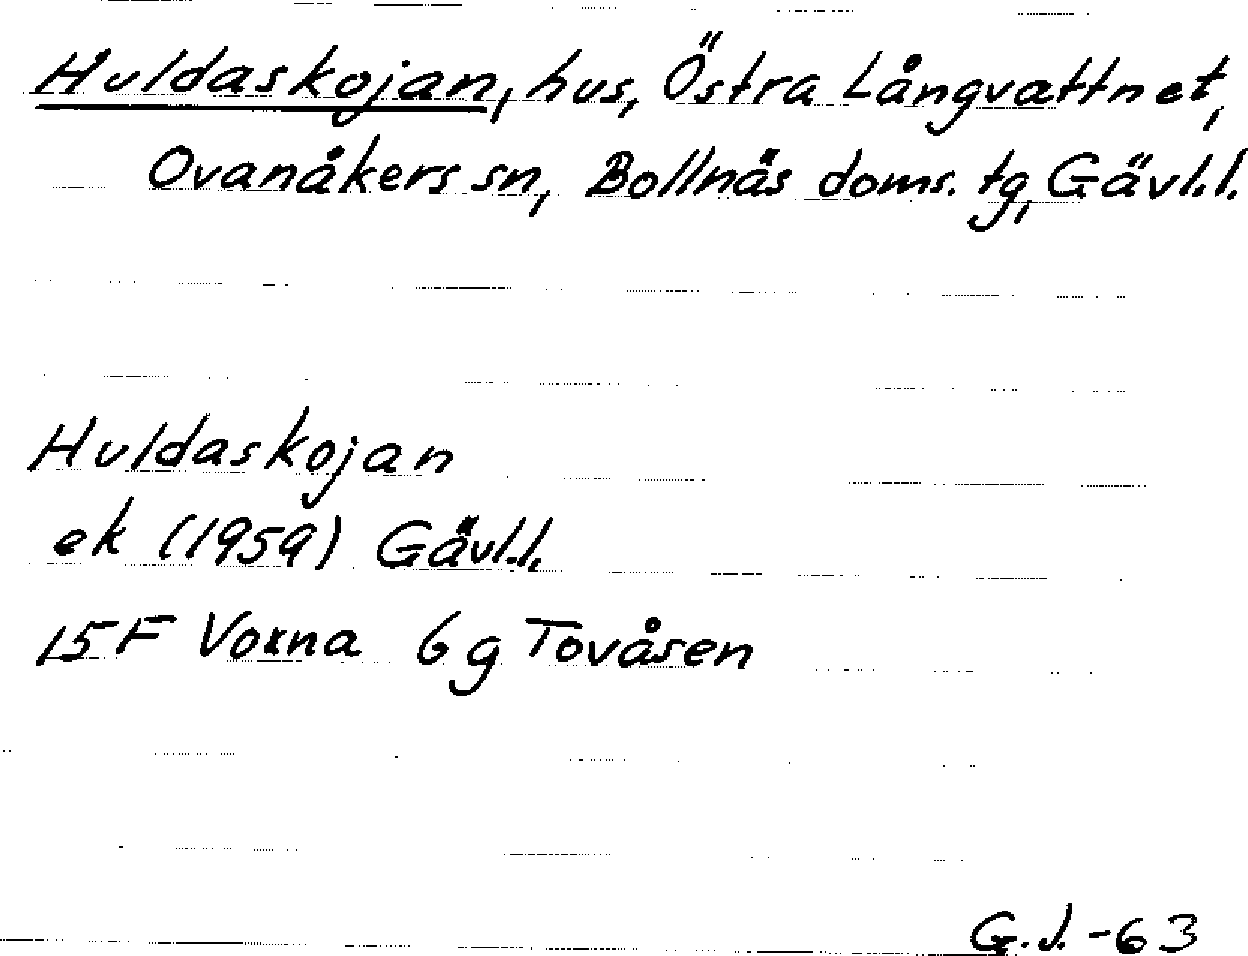 Huldaskojan, hus, Östra Långvattnet,
Ovanåkers sn, Bollnäs doms. tg, Gävl.l.
Huldaskojan
ek (1959) Gävl.l.
15F Voxna 6g Tovåsen
G.J. -63